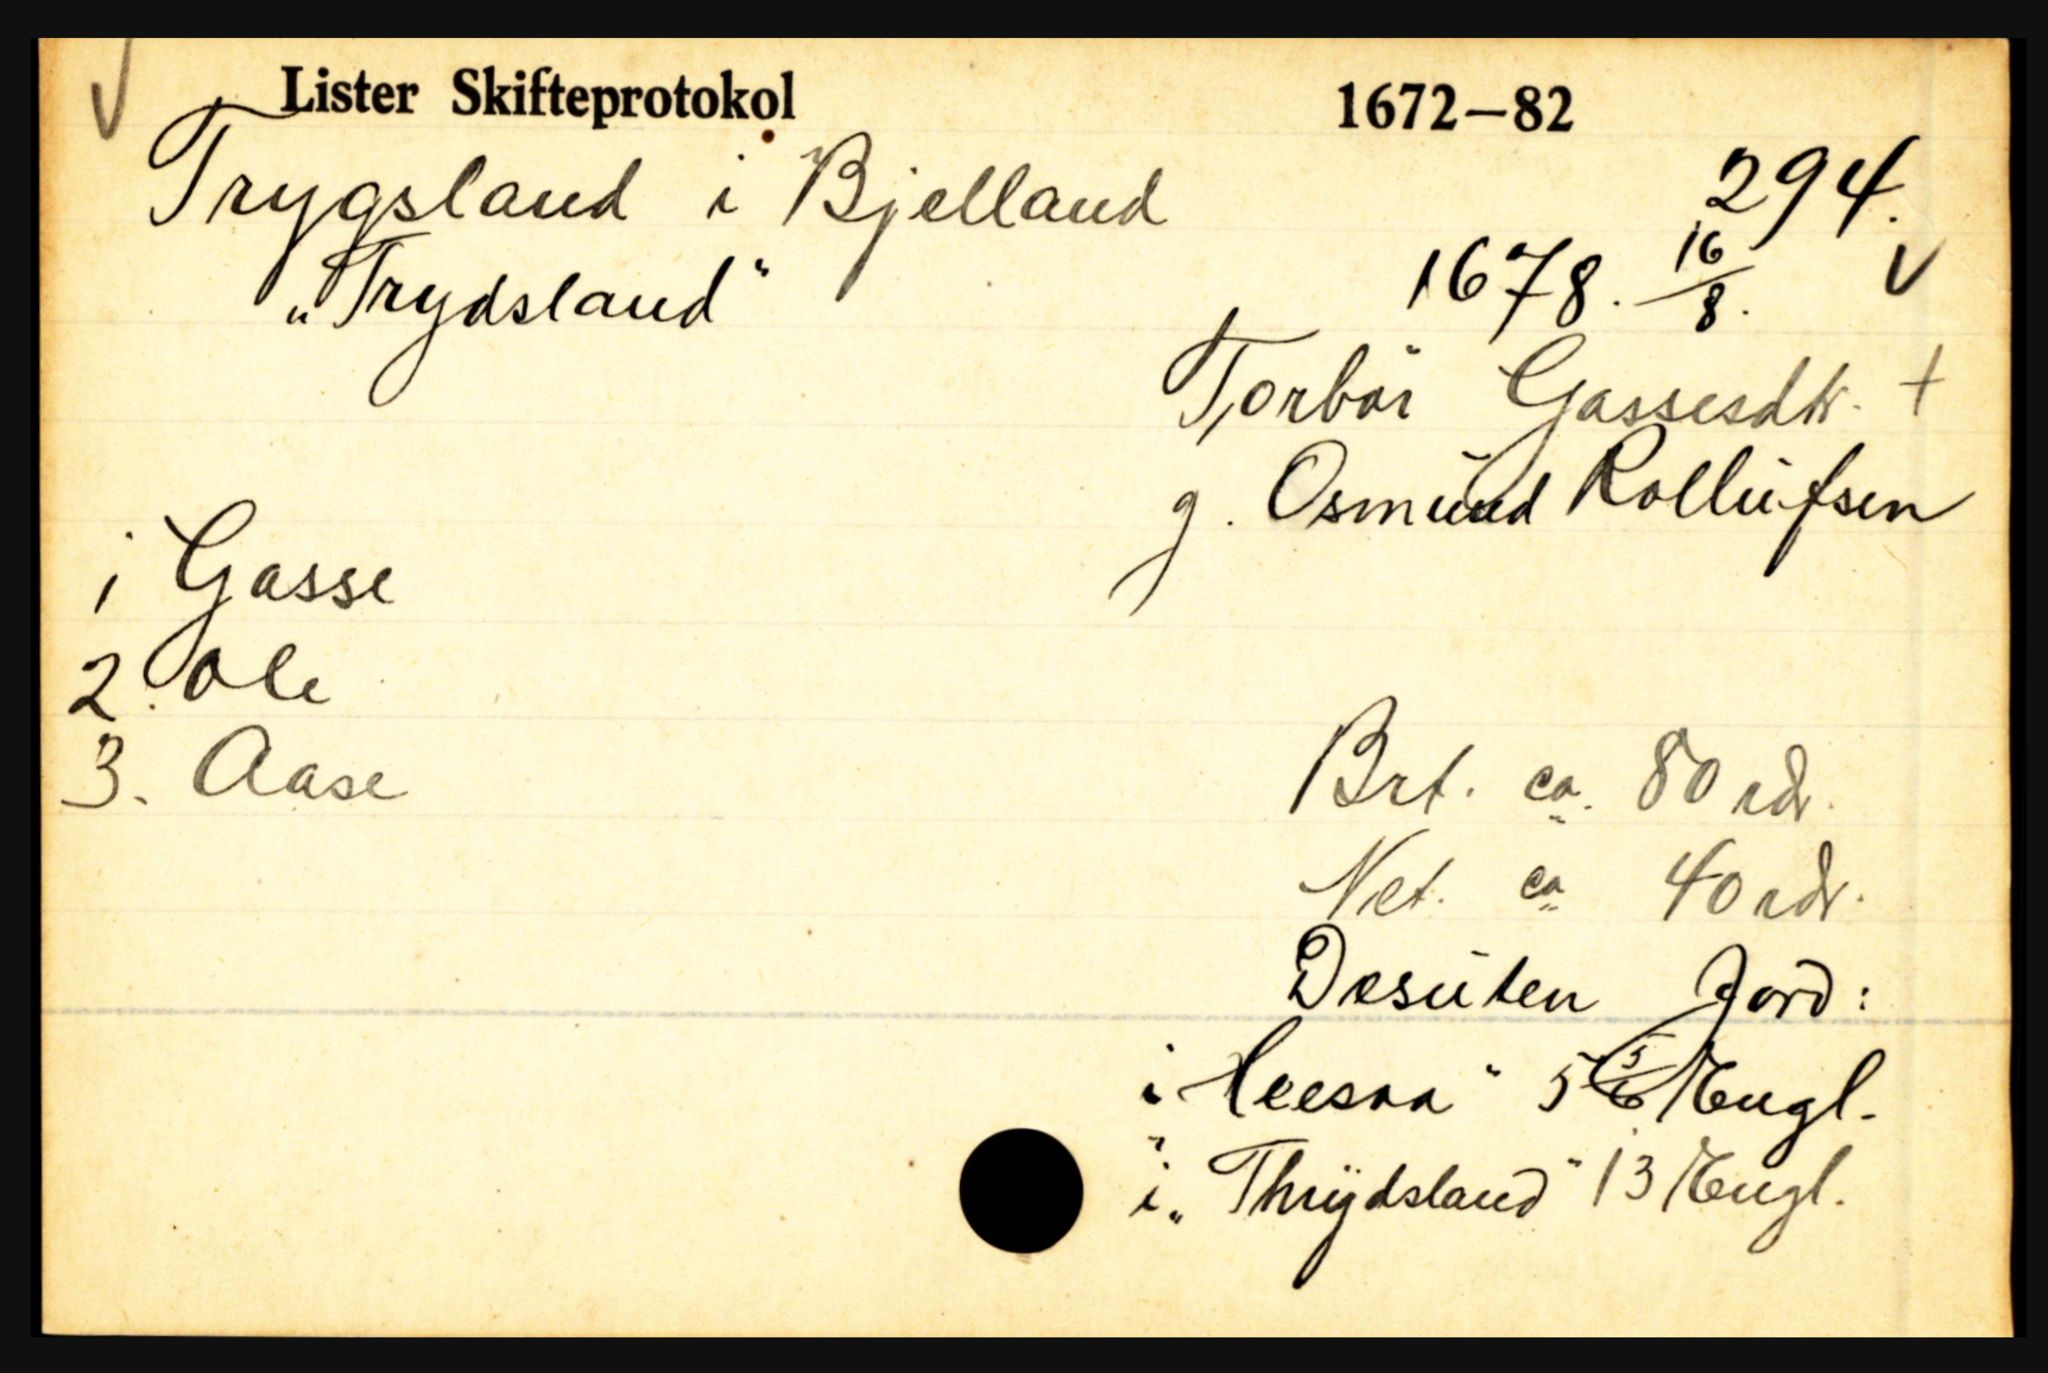 Lister Skifteprotokol 1672–82
Trygsland i Bjelland 294.
„Trydsland“ 1678. 16/8.
Torbör Gassesdtr. +
g. Osmünd Rollüfsen
1 Gasse
2. Ole
3. Aase
Brt. ca. 80 rdr.
Net. ca 40 rdr.
Desüten Jord:
i „Heesaa“ 5 5/6 Engl.
i „Thrÿdsland“ 13 Engl.